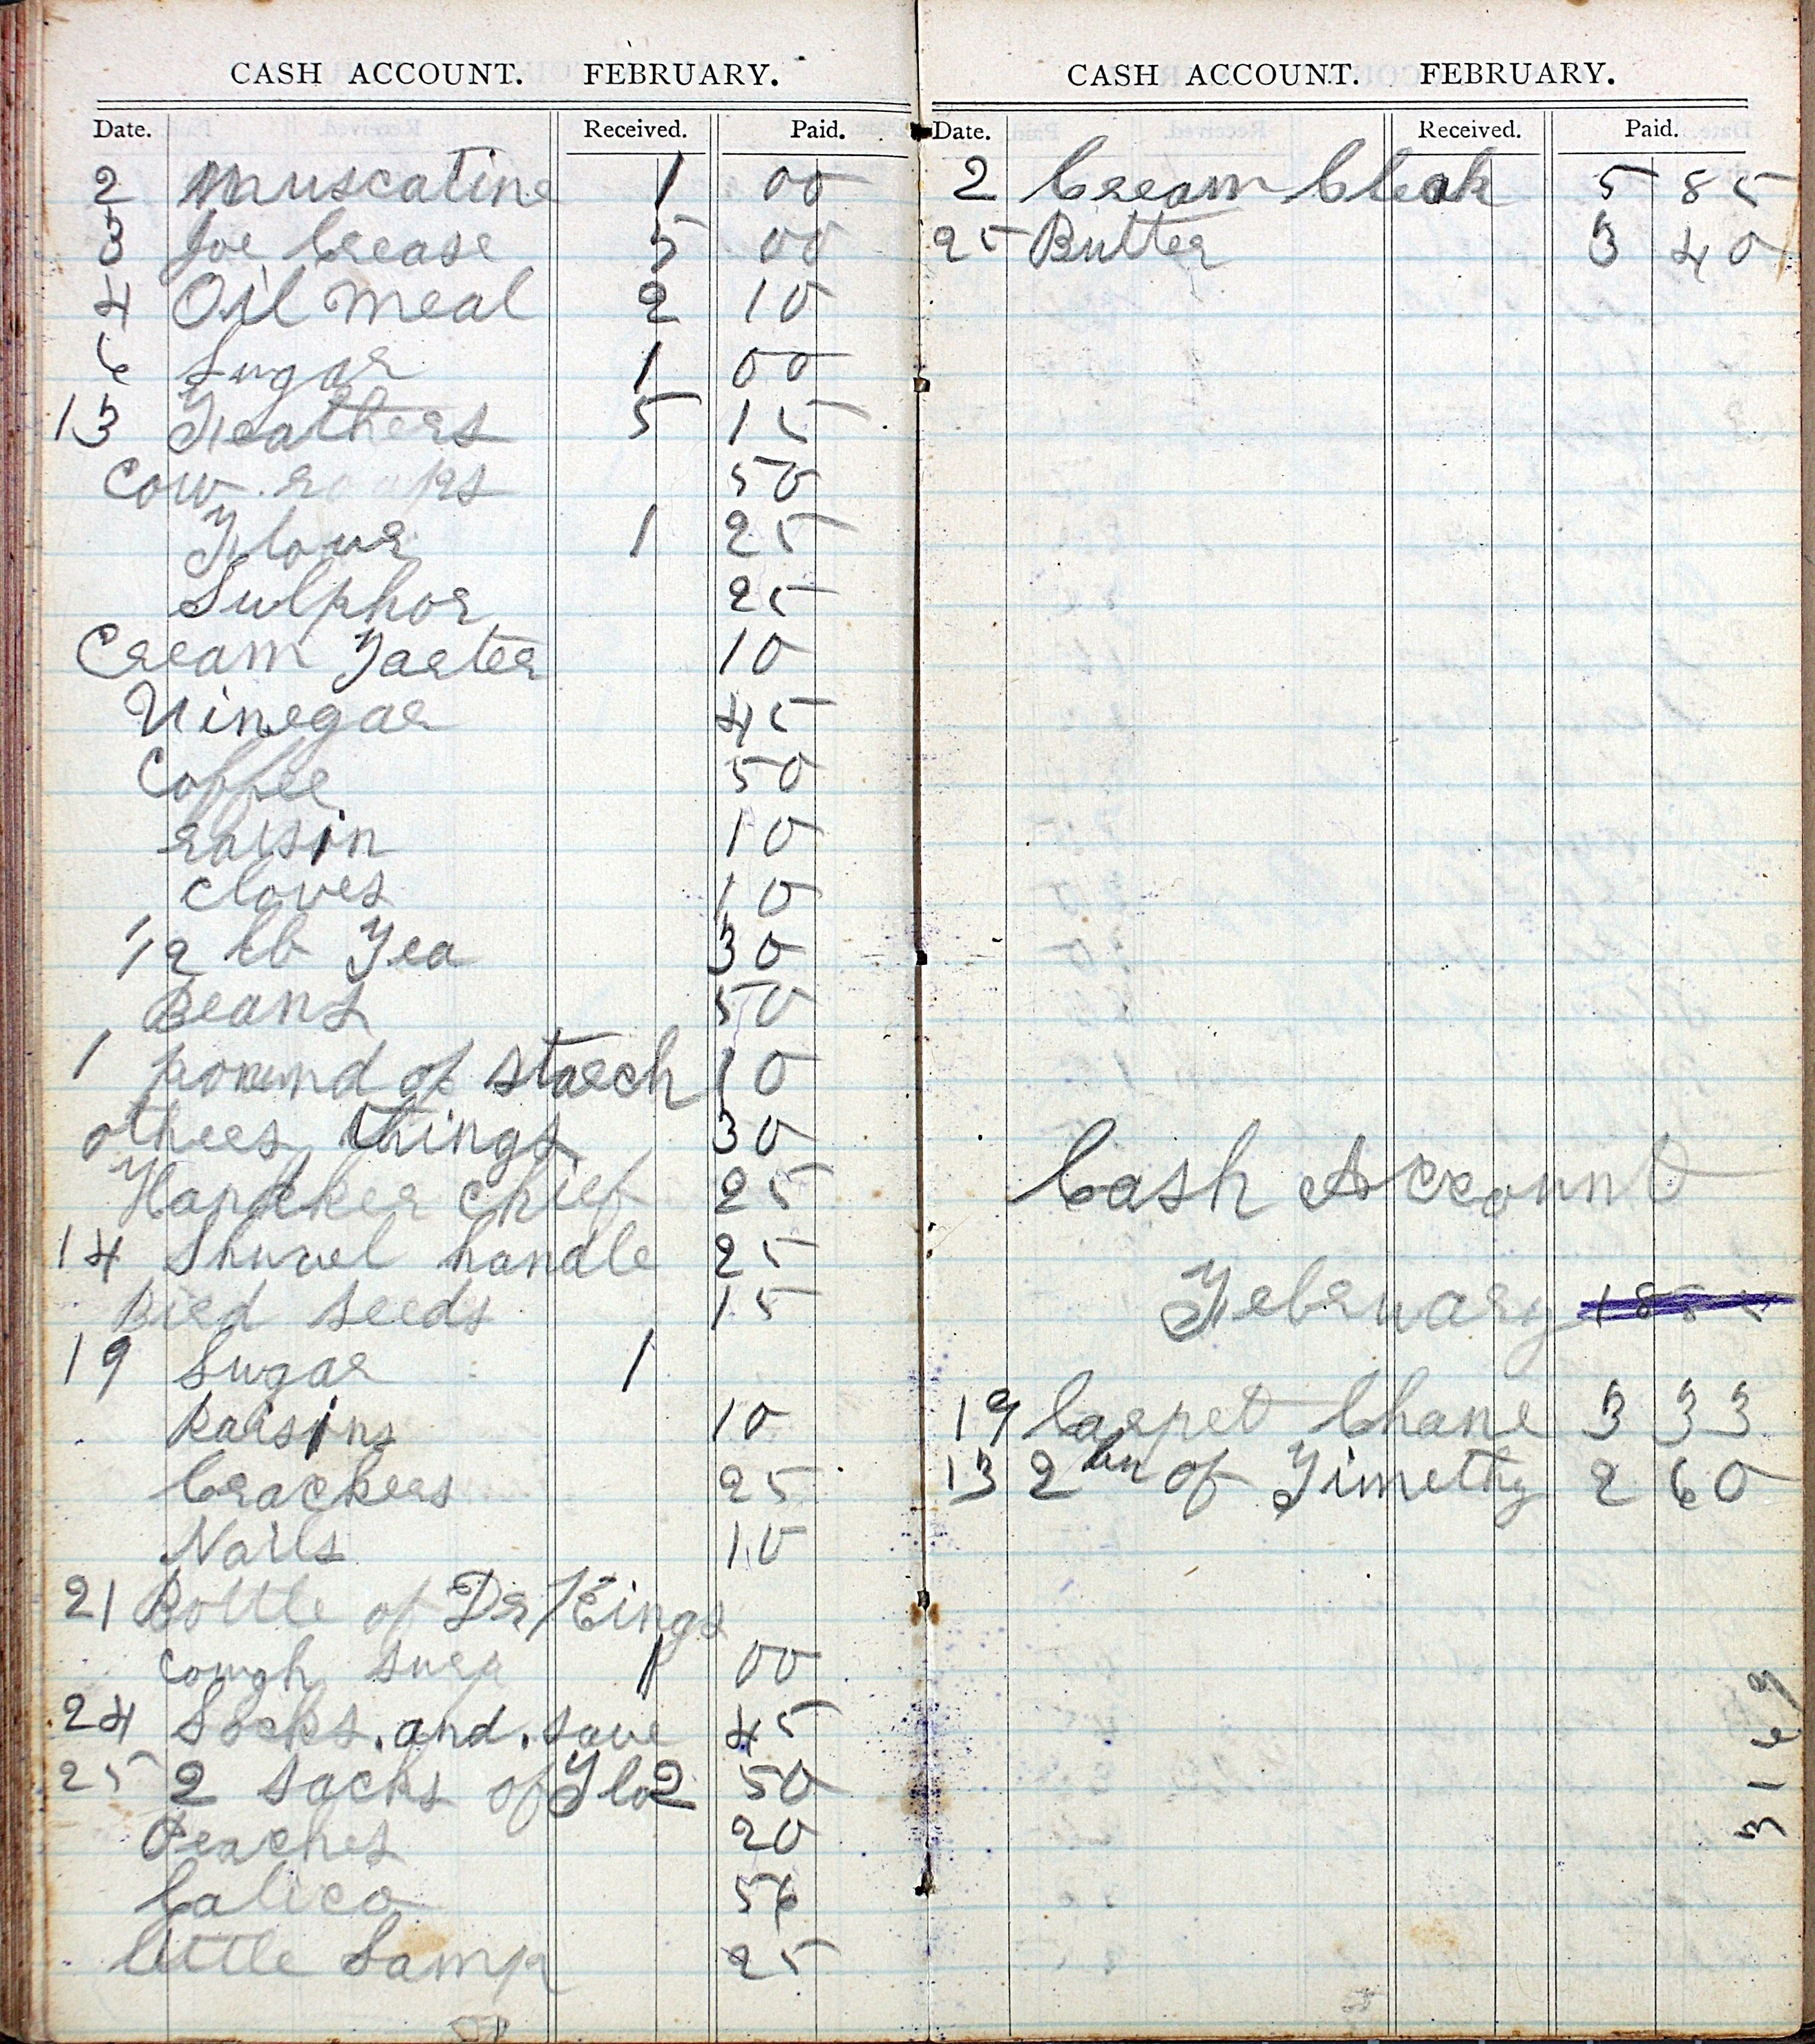 CASH ACCOUNT. FEBRUARY.
Date. Received. Paid.
2 Muscatine 1 00
3 Joe Crease 5 00
4 Oil meal 2 10
6 Sugar 1 00
13 Feathers 5 15
Cow 50
Flour 1 25
Sulphor 25
Cream Tarter 10
Vinegar 45
Coffee 50
raisin 10
cloves 10
1/2 lb Tea 30
Beans 50
1 pound of starch 10
others things 30
Handkerchief 25
14 Shuvel handle 25
Bird seeds 15
19 Sugar 1
Raisins 10
Crackers 25
Nails 10
21 Bottle of Dr Kings
cough surp 1 00
24 Socks and save 45
25 2 sacks of Flo 2 50
Peaches 20
Calico 56
little Lamp 25
CASH ACCOUNT. FEBRUARY.
Date. Received. Paid.
2 Cream Check 5 85
25 Butter 3 40
Cash Account
February
19 Carpet Chane 3 33
13 2 bu of Timethy 2 60